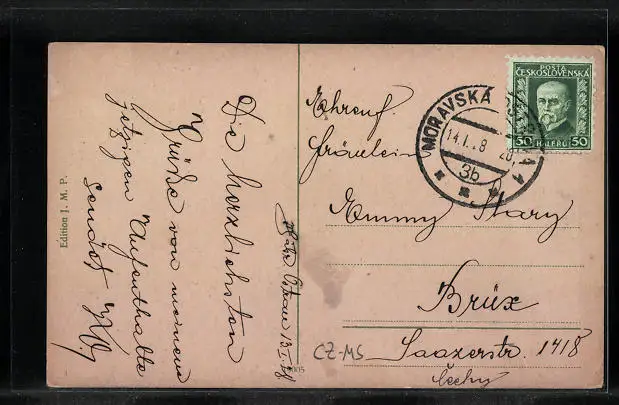 Die herzlichsten
Grüße von meinem
jetzigen Aufenthalte
sendet
Mähr. Ostrau 13/I. 28
Edition J. M. P.
Ehrenf.
Fräulein
Emmy
Brüx
Saazerstr. 1418
Čechy
CZ-MS
MORAVSKÁ OSTRAVA 1
14.I.28
3b
POŠTA
ČESKOSLOVENSKÁ
50 HALÉŘŮ 50